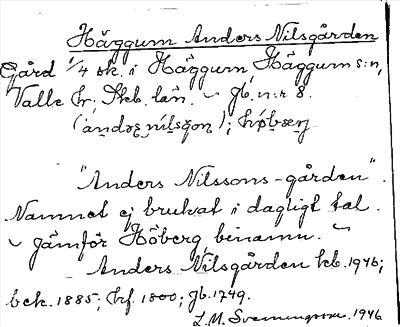 Häggum Anders Nilsgården
Gård 1/4 sk. i Häggum, Häggum s:n,
Valle hr; Skb. län. ~ Jb. n:r 8.
"Anders Nilssons-gården".
Namnet ej brukat i dagligt tal.
~ Jämför Höberg, binamn. ~
Anders Nilsgården kb. 1946;
bek. 1885; hf. 1800; Jb. 1749.
L.M. Svenungsson. 1946